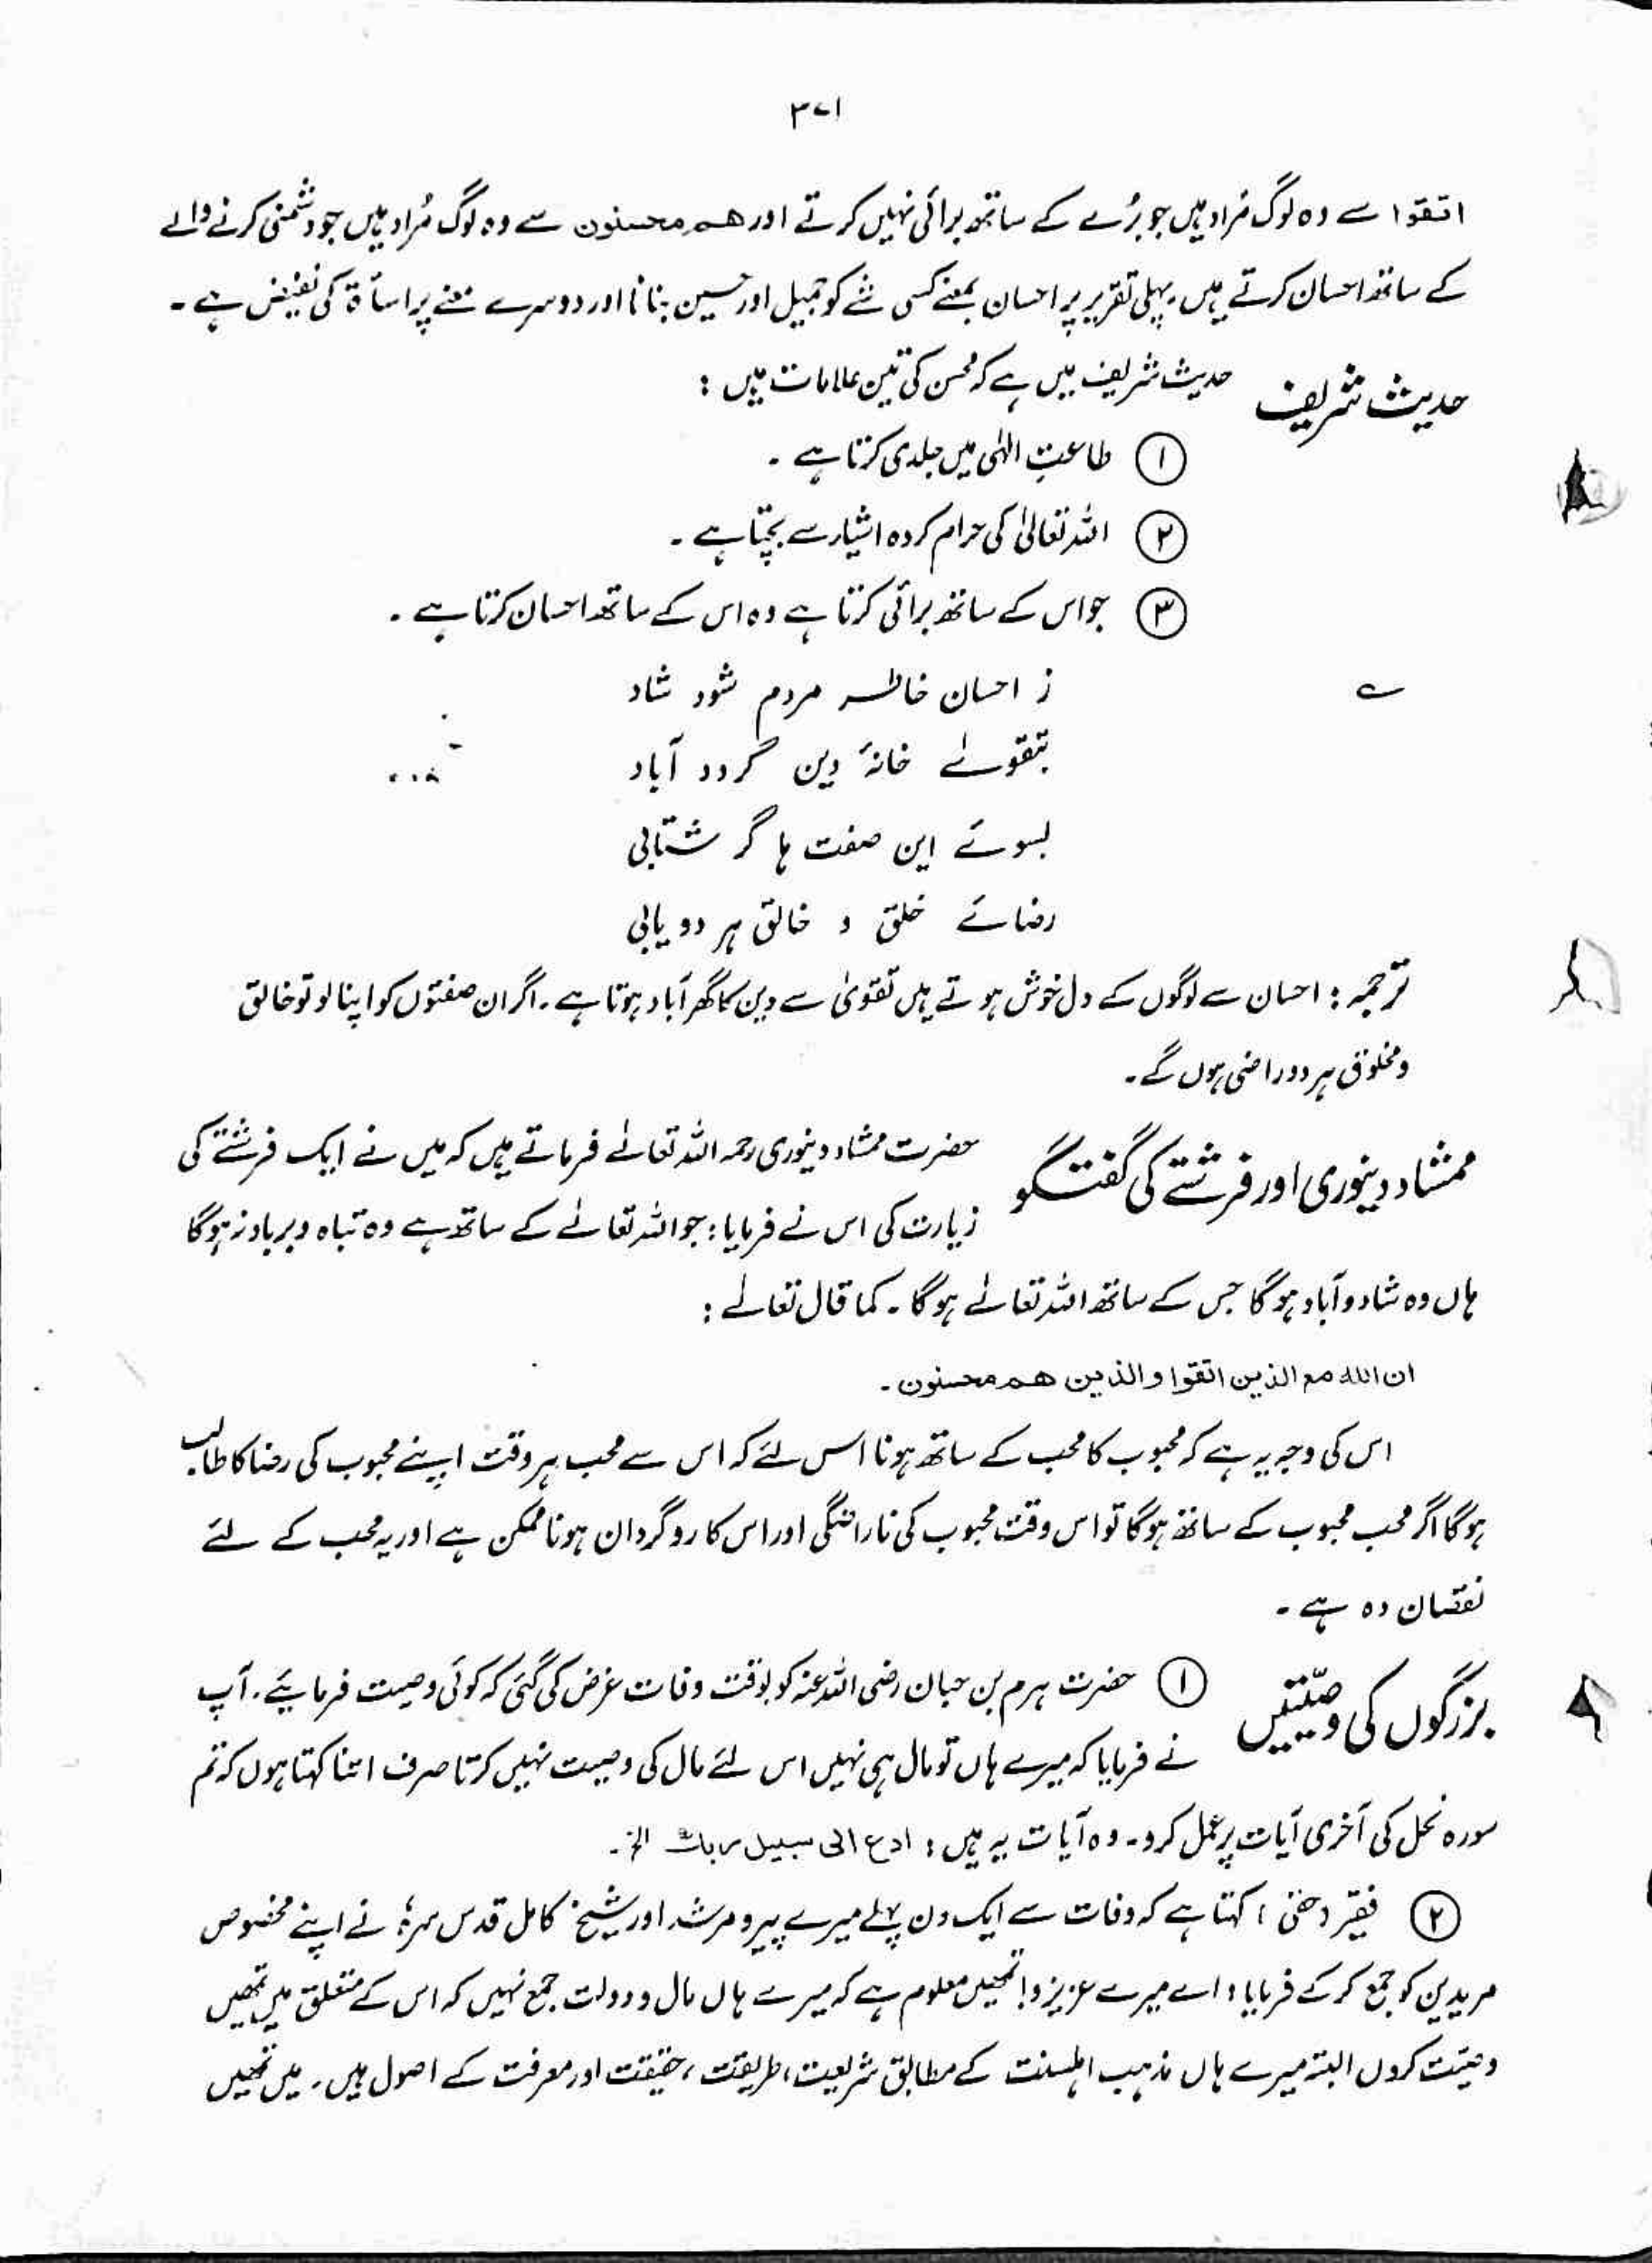 ۳۷۱
اتقوا سے وہ لوگ مُراد ہیں جو بُرے کے ساتھ برائی نہیں کرتے اور هم محسنون سے وہ لوگ مُراد ہیں جو دشمنی کرنے والے
کے ساتھ احسان کرتے ہیں۔ پہلی تقریر پر احسان بمعنے کسی شے کو جمیل اور حسین بنانا اور دوسرے معنے پر اساۃ کی نقیض ہے۔
حدیث شریف
حدیث شریف میں ہے کہ محسن کی تین علامات ہیں :
① طاعتِ الٰہی میں جلدی کرتا ہے ۔
② اللہ تعالیٰ کی حرام کردہ اشیار سے بچتا ہے ۔
③ جو اس کے ساتھ برائی کرتا ہے وہ اس کے ساتھ احسان کرتا ہے ۔
ے ز احسان خاطر مردم شود شاد
بتقوے خانۂ دین گردد آباد
بسوئے این صفت ہا گر شتابی
رضائے خلق و خالق ہر دو یابی
ترجمہ : احسان سے لوگوں کے دل خوش ہوتے ہیں تقویٰ سے دین کا گھر آباد ہوتا ہے۔ اگر ان صفتوں کو اپنا لو تو خالق
و مخلوق ہر دو راضی ہوں گے۔
ممشاد دینوری اور فرشتے کی گفتگو
حضرت ممشاد دینوری رحمہ اللہ تعالے فرماتے ہیں کہ میں نے ایک فرشتے کی
زیارت کی اس نے فرمایا : جو اللہ تعالے کے ساتھ ہے وہ تباہ و برباد نہ ہوگا
ہاں وہ شاد و آباد ہوگا جس کے ساتھ اللہ تعالے ہوگا ۔ کما قال تعالے :
ان الله مع الذین اتقوا و الذین هم محسنون۔
اس کی وجہ یہ ہے کہ محبوب کا محب کے ساتھ ہونا اس لئے کہ اس سے محب ہر وقت اپنے محبوب کی رضا کا طالب
ہوگا اگر محب محبوب کے ساتھ ہوگا تو اس وقت محبوب کی ناراضگی اور اس کا روگردان ہونا ممکن ہے اور یہ محب کے لئے
نقصان دہ ہے ۔
بزرگوں کی وصیّتیں
① حضرت ہرم بن حیان رضی اللہ عنہ کو بوقت وفات عرض کی گئی کہ کوئی وصیت فرمایئے۔ آپ
نے فرمایا کہ میرے ہاں تو مال ہی نہیں اس لئے مال کی وصیت نہیں کرتا صرف اتنا کہتا ہوں کہ تم
سورہ نحل کی آخری آیات پر عمل کرو۔ وہ آیات یہ ہیں : ادع الی سبیل ربك الخ۔
② فقیر (حقی) کہتا ہے کہ وفات سے ایک دن پہلے میرے پیر و مرشد اور شیخ کامل قدس سرہٗ نے اپنے مخصوص
مریدین کو جمع کر کے فرمایا : اے میرے عزیزو! تمھیں معلوم ہے کہ میرے ہاں مال و دولت جمع نہیں کہ اس کے متعلق میں تمھیں
وصیّت کروں البتہ میرے ہاں مذہب اہلسنت کے مطابق شریعت، طریقت، حقیقت اور معرفت کے اصول ہیں۔ میں تمھیں